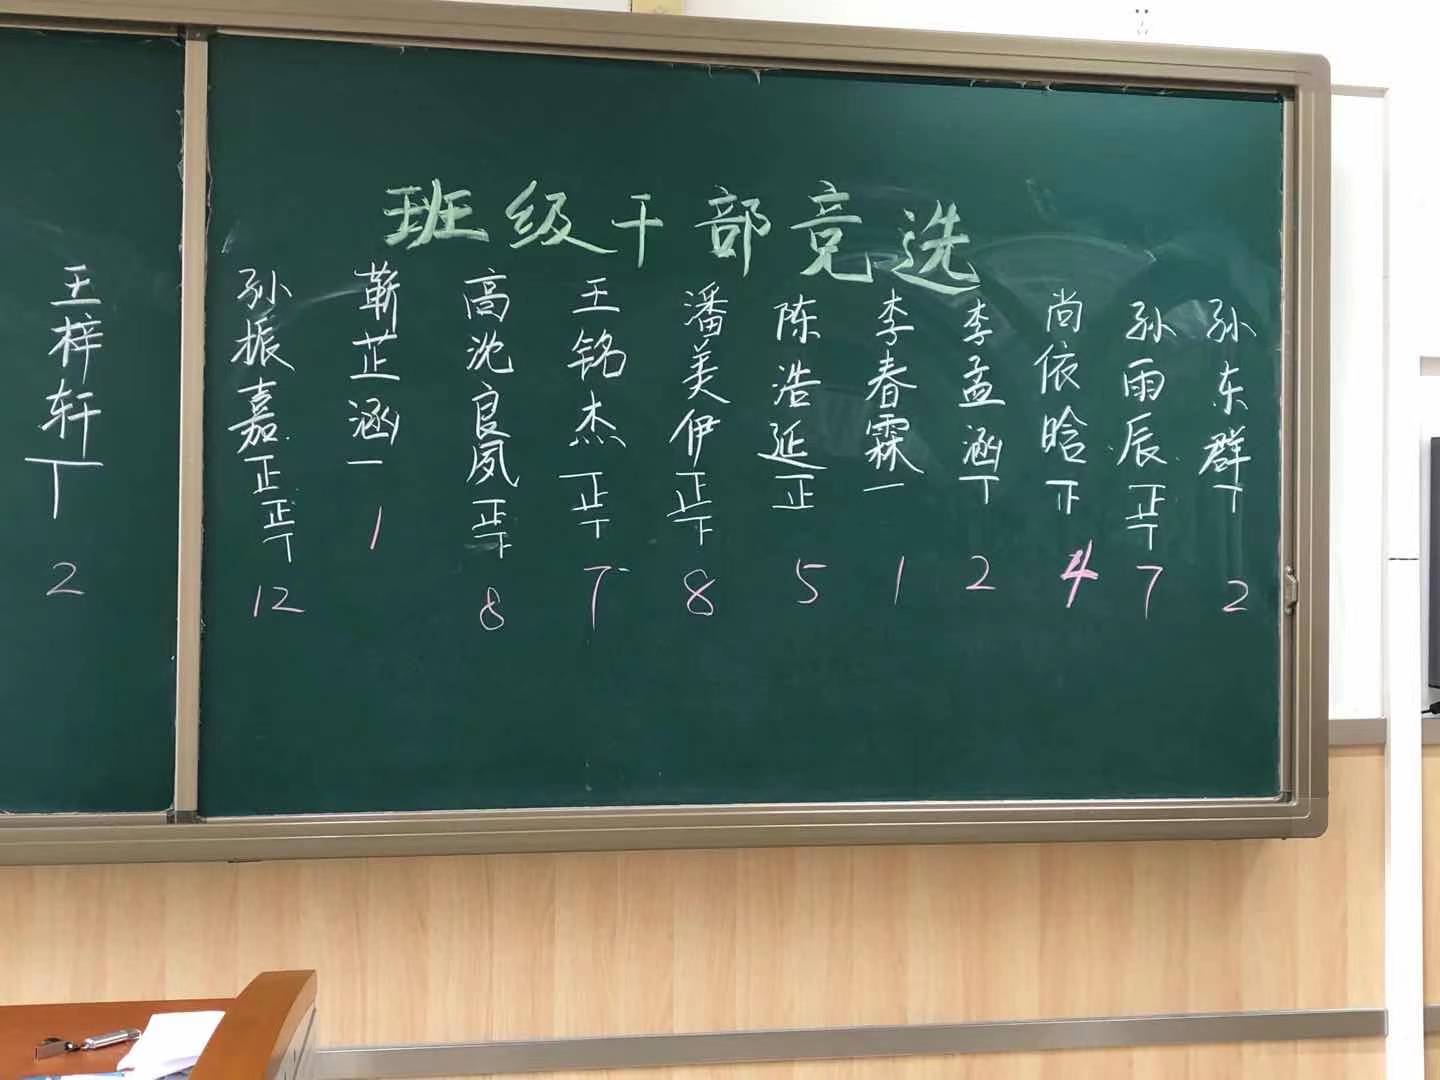 班级干部竞选
王梓轩 丅 2
孙振嘉 正正丅 12
蕲芷涵 一 1
高沈良夙 正下 8
王铭杰 正丅 7
潘美伊 正下 8
陈浩延 正 5
李春霖 一 1
李孟涵 丅 2
尚依晗 4
孙雨辰 正丅 7
孙东群 丅 2